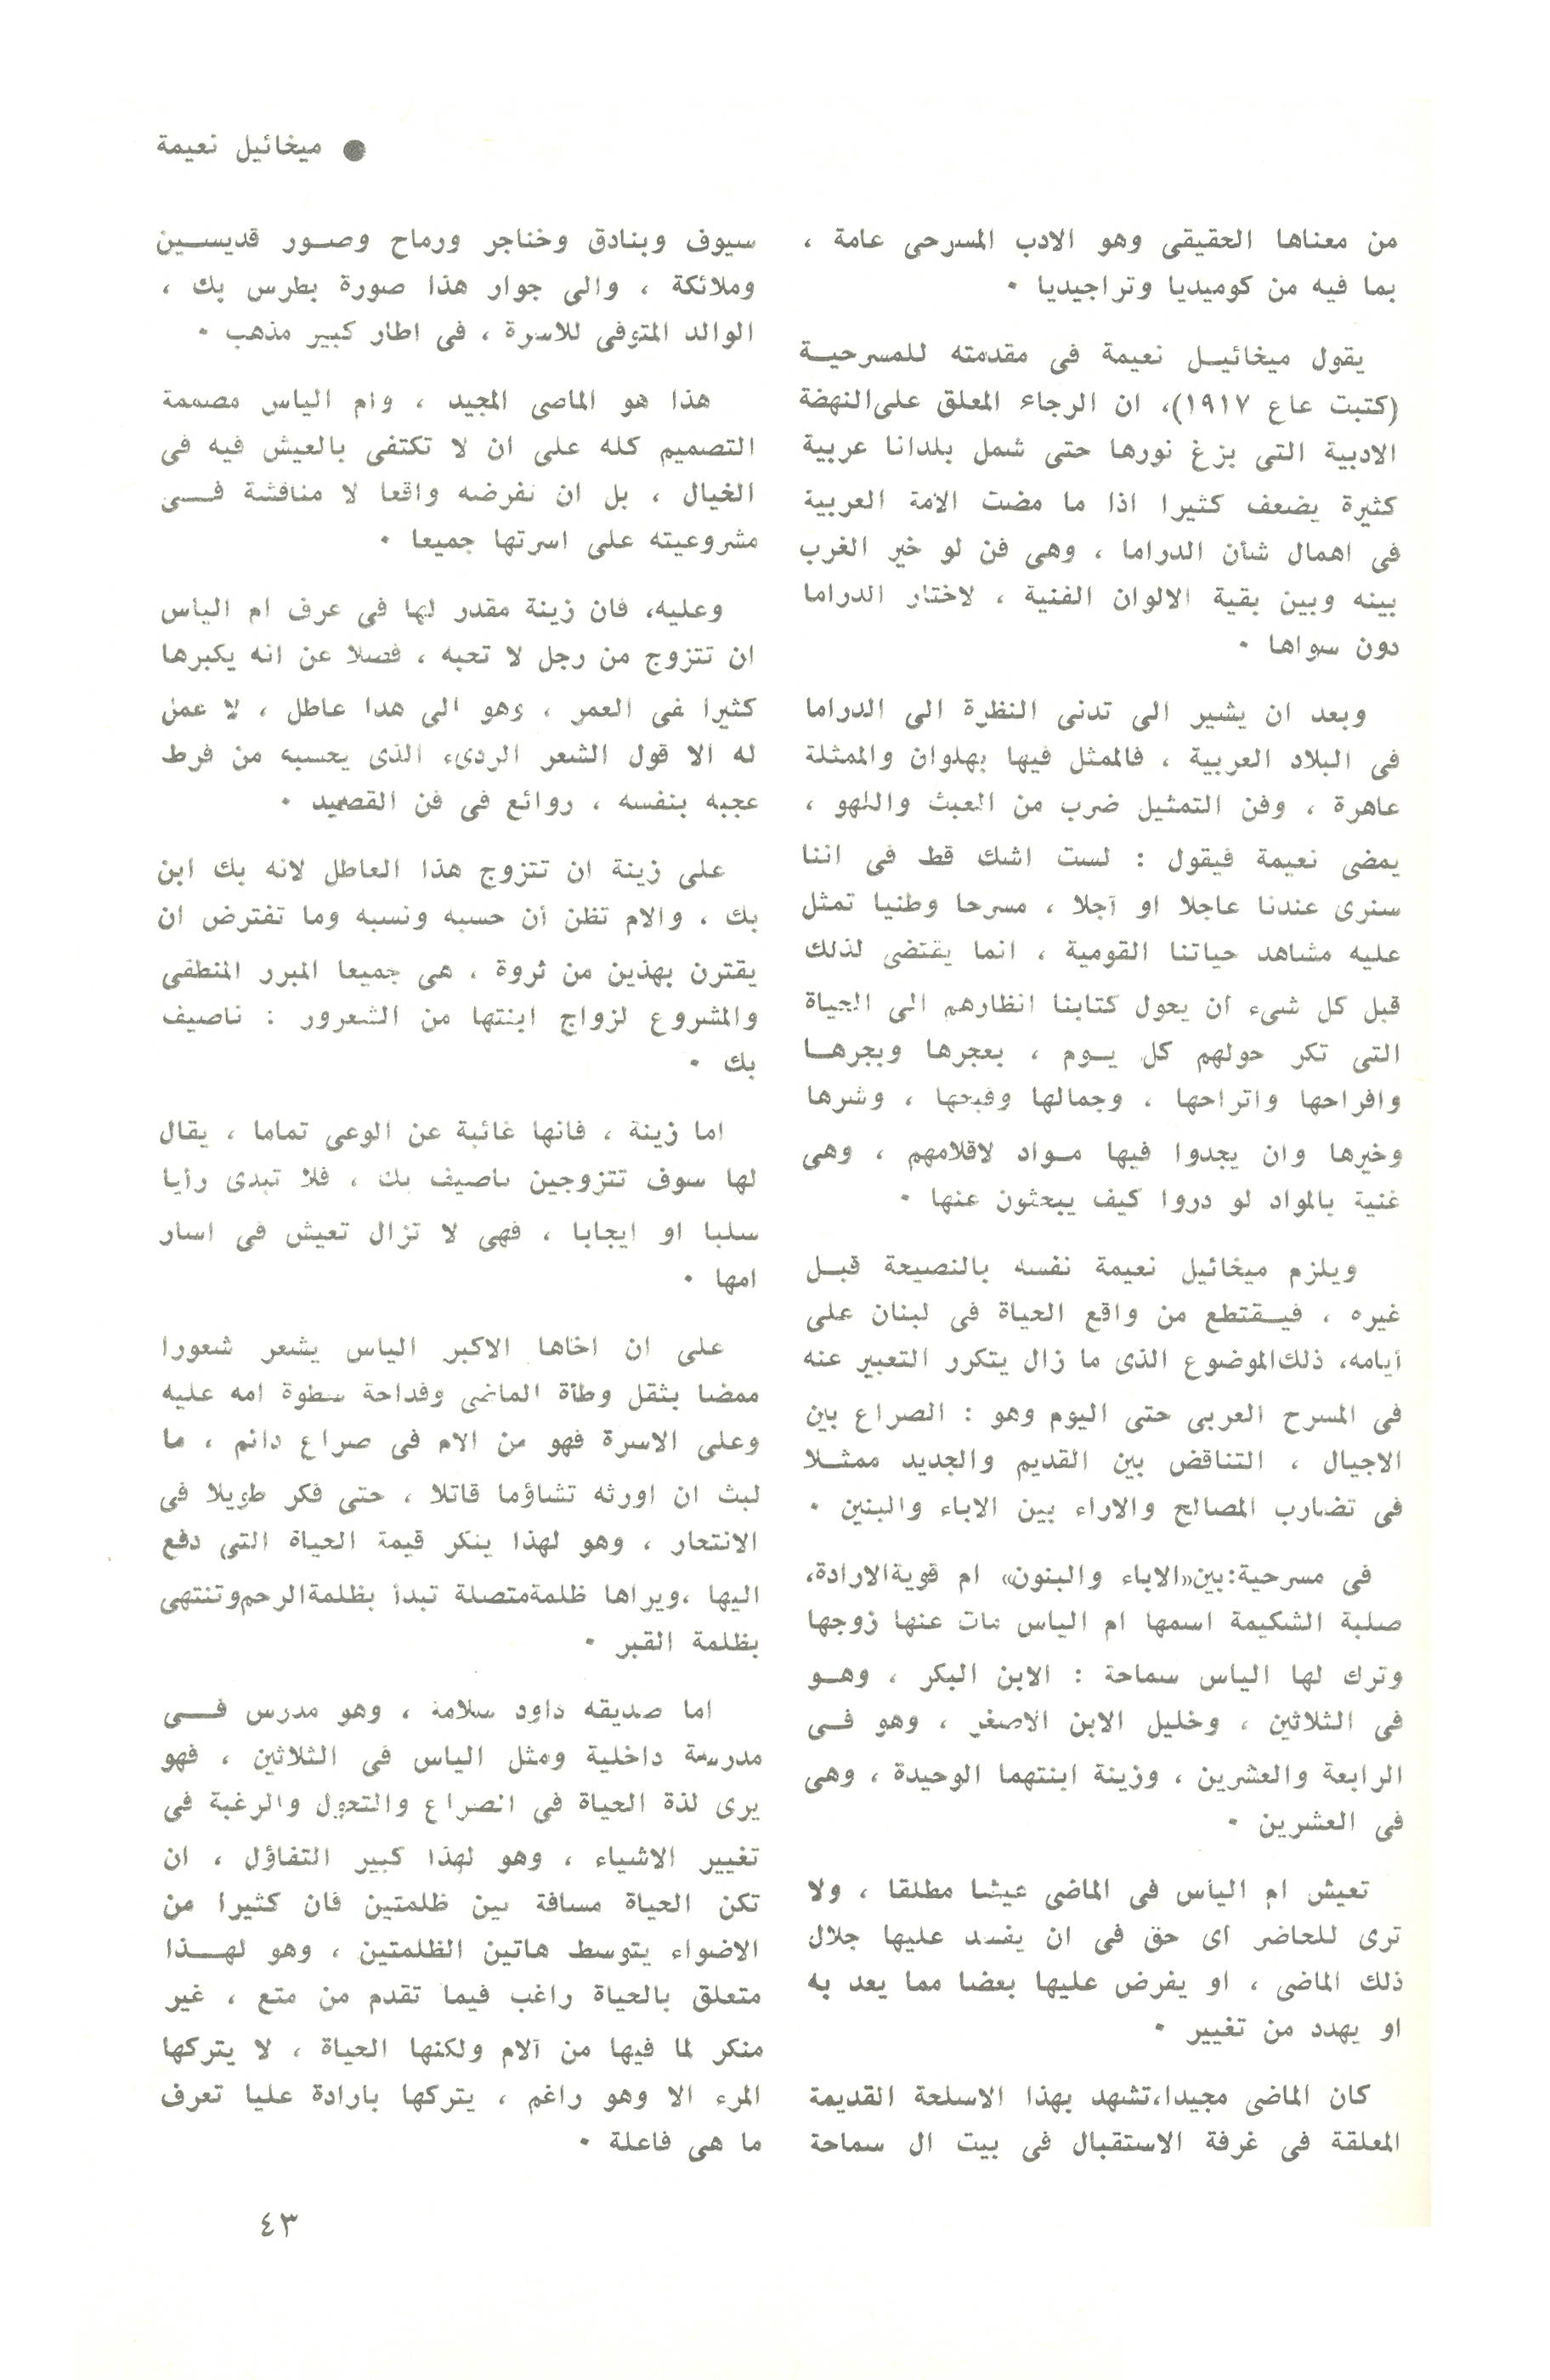 ● ميخائيل نعيمة
من معناها الحقيقى وهو الادب المسرحى عامة ،
بما فيه من كوميديا وتراجيديا ٠
يقول ميخائيل نعيمة فى مقدمته للمسرحية
(كتبت عاع ١٩١٧)، ان الرجاء المعلق على النهضة
الادبية التى بزغ نورها حتى شمل بلدانا عربية
كثيرة يضعف كثيرا اذا ما مضت الامة العربية
فى اهمال شأن الدراما ، وهى فن لو خير الغرب
بينه وبين بقية الالوان الفنية ، لاختار الدراما
دون سواها ٠
وبعد ان يشير الى تدنى النظرة الى الدراما
فى البلاد العربية ، فالممثل فيها بهلوان والممثلة
عاهرة ، وفن التمثيل ضرب من العبث واللهو ،
يمضى نعيمة فيقول : لست اشك قط فى اننا
سنرى عندنا عاجلا او آجلا ، مسرحا وطنيا تمثل
عليه مشاهد حياتنا القومية ، انما يقتضى لذلك
قبل كل شىء ان يحول كتابنا انظارهم الى الحياة
التى تكر حولهم كل يوم ، بعجرها وبجرها
وافراحها واتراحها ، وجمالها وقبحها ، وشرها
وخيرها وان يجدوا فيها مواد لاقلامهم ، وهى
غنية بالمواد لو دروا كيف يبحثون عنها ٠
ويلزم ميخائيل نعيمة نفسه بالنصيحة قبل
غيره ، فيقتطع من واقع الحياة فى لبنان على
أيامه، ذلك الموضوع الذى ما زال يتكرر التعبير عنه
فى المسرح العربى حتى اليوم وهو : الصراع بين
الاجيال ، التناقض بين القديم والجديد ممثلا
فى تضارب المصالح والاراء بين الاباء والبنين ٠
فى مسرحية:بين«الاباء والبنون» ام قوية الارادة،
صلبة الشكيمة اسمها ام الياس مات عنها زوجها
وترك لها الياس سماحة : الابن البكر ، وهو
فى الثلاثين ، وخليل الابن الاصغر ، وهو فى
الرابعة والعشرين ، وزينة ابنتهما الوحيدة ، وهى
فى العشرين ٠
تعيش ام الياس فى الماضى عيشا مطلقا ، ولا
ترى للحاضر اى حق فى ان يفسد عليها جلال
ذلك الماضى ، او يفرض عليها بعضا مما يعد به
او يهدد من تغيير ٠
كان الماضى مجيدا،تشهد بهذا الاسلحة القديمة
المعلقة فى غرفة الاستقبال فى بيت ال سماحة
سيوف وبنادق وخناجر ورماح وصور قديسين
وملائكة ، والى جوار هذا صورة بطرس بك ،
الوالد المتوفى للاسرة ، فى اطار كبير مذهب ٠
هذا هو الماضى المجيد ، وام الياس مصممة
التصميم كله على ان لا تكتفى بالعيش فيه فى
الخيال ، بل ان تفرضه واقعا لا مناقشة فى
مشروعيته على اسرتها جميعا ٠
وعليه، فان زينة مقدر لها فى عرف ام الياس
ان تتزوج من رجل لا تحبه ، فضلا عن انه يكبرها
كثيرا فى العمر ، وهو الى هذا عاطل ، لا عمل
له الا قول الشعر الردىء الذى يحسبه من فرط
عجبه بنفسه ، روائع فى فن القصيد ٠
على زينة ان تتزوج هذا العاطل لانه بك ابن
بك ، والام تظن أن حسبه ونسبه وما تفترض ان
يقترن بهذين من ثروة ، هى جميعا المبرر المنطقى
والمشروع لزواج ابنتها من الشعرور : ناصيف
بك ٠
اما زينة ، فانها غائبة عن الوعى تماما ، يقال
لها سوف تتزوجين ناصيف بك ، فلا تبدى رأيا
سلبا او ايجابا ، فهى لا تزال تعيش فى اسار
امها ٠
على ان اخاها الاكبر الياس يشعر شعورا
ممضا بثقل وطأة الماضى وفداحة سطوة امه عليه
وعلى الاسرة فهو من الام فى صراع دائم ، ما
لبث ان اورثه تشاؤما قاتلا ، حتى فكر طويلا فى
الانتحار ، وهو لهذا ينكر قيمة الحياة التى دفع
اليها ،ويراها ظلمة متصلة تبدأ بظلمة الرحم وتنتهى
بظلمة القبر ٠
اما صديقه داود سلامة ، وهو مدرس فى
مدرسة داخلية ومثل الياس فى الثلاثين ، فهو
يرى لذة الحياة فى الصراع والتحول والرغبة فى
تغيير الاشياء ، وهو لهذا كبير التفاؤل ، ان
تكن الحياة مسافة بين ظلمتين فان كثيرا من
الاضواء يتوسط هاتين الظلمتين ، وهو لهذا
متعلق بالحياة راغب فيما تقدم من متع ، غير
منكر لما فيها من آلام ولكنها الحياة ، لا يتركها
المرء الا وهو راغم ، يتركها بارادة عليا تعرف
ما هى فاعلة ٠
٤٣